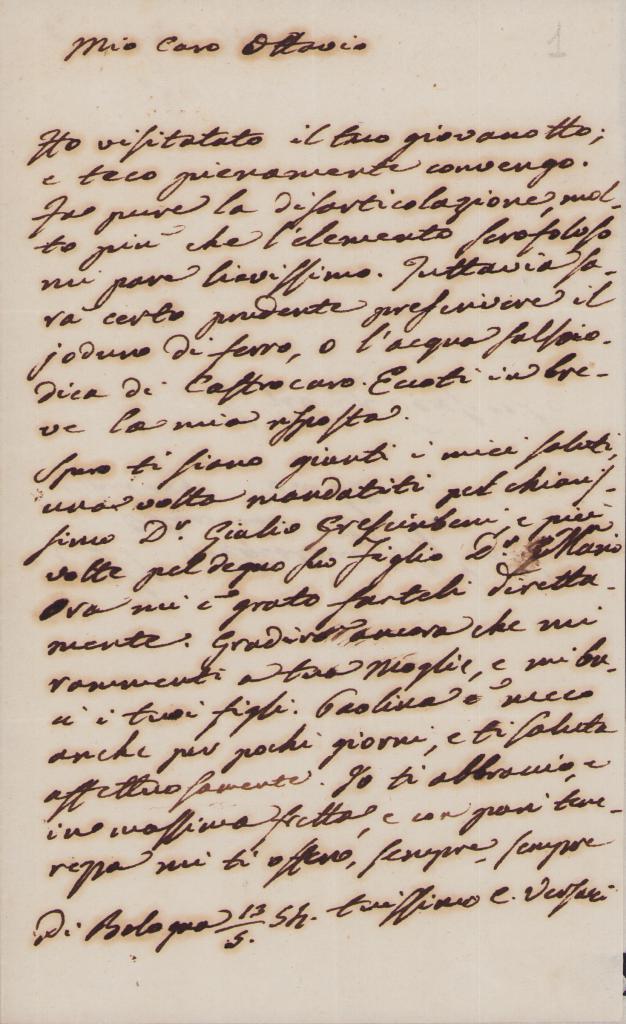 1
Mio Caro Ottavio
Ho visitatato il tuo giovanotto;
e teco pienamente convengo.
Fa pure la disarticolazione, mol-
to più che l'elemento scrofoloso
mi pare lievissimo. Tuttavia sa-
rà certo prudente prescrivere il
joduro di ferro, o l'acqua salsoio-
dica di Castrocaro. Eccoti in bre-
ve la mia risposta.
Spero ti siano giunti i miei saluti,
una volta mandatiti pel chiaris-
simo Dr. Giulio Crescimbeni, e più
volte pel degno suo figlio Dr. Mario
Ora mi è grato farteli diretta-
mente. Gradirò ancora che mi
rammenti a tua Moglie, e mi ba-
ci i tuoi figli. Paolina è meco
anche per pochi giorni, e ti saluta
affettuosamente. Io ti abbraccio, e
in massima fretta, e con pari tene-
rezza mi ti offero, sempre, sempre
Di Bologna 13/5. 54. tuissimo C. Versari